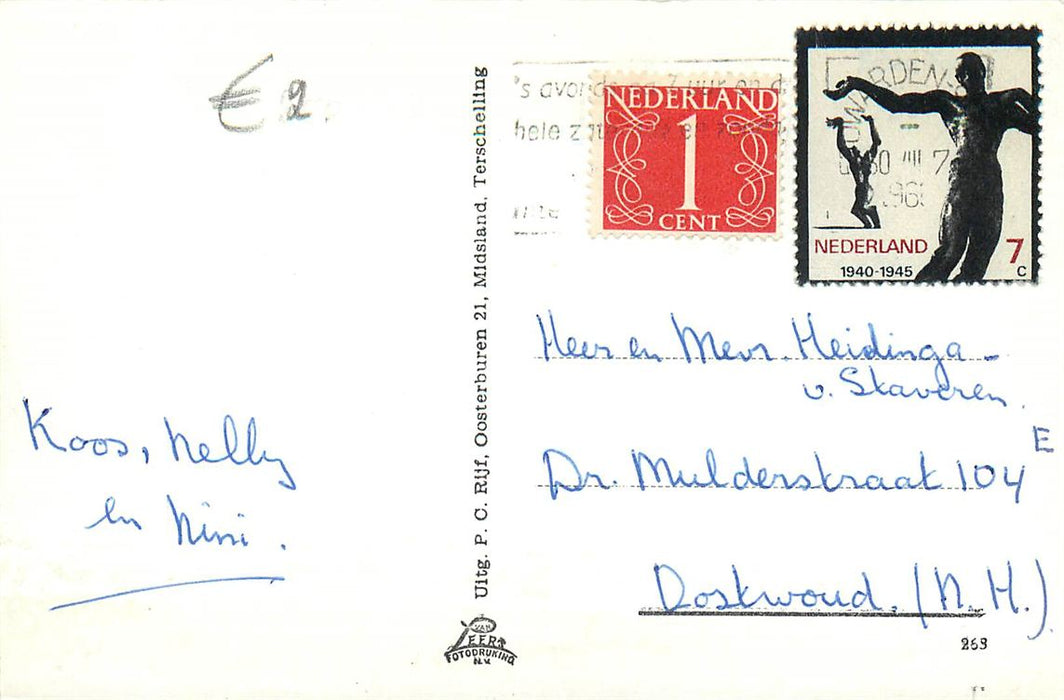 € 2.
Koos, Nelly
en Nini.
Uitg. P. C. Rijf, Oosterburen 21, Midsland, Terschelling
VAN
LEER
FOTODRUKINO
N.V.
's avonds na 7 uur en
hele
NEDERLAND
1
CENT
1960
NEDERLAND
7
1940-1945
C
Heer en Mevr. Heidinga -
v. Staveren.
E
Dr. Mulderstraat 104
Oostwoud. (N. H.)
263